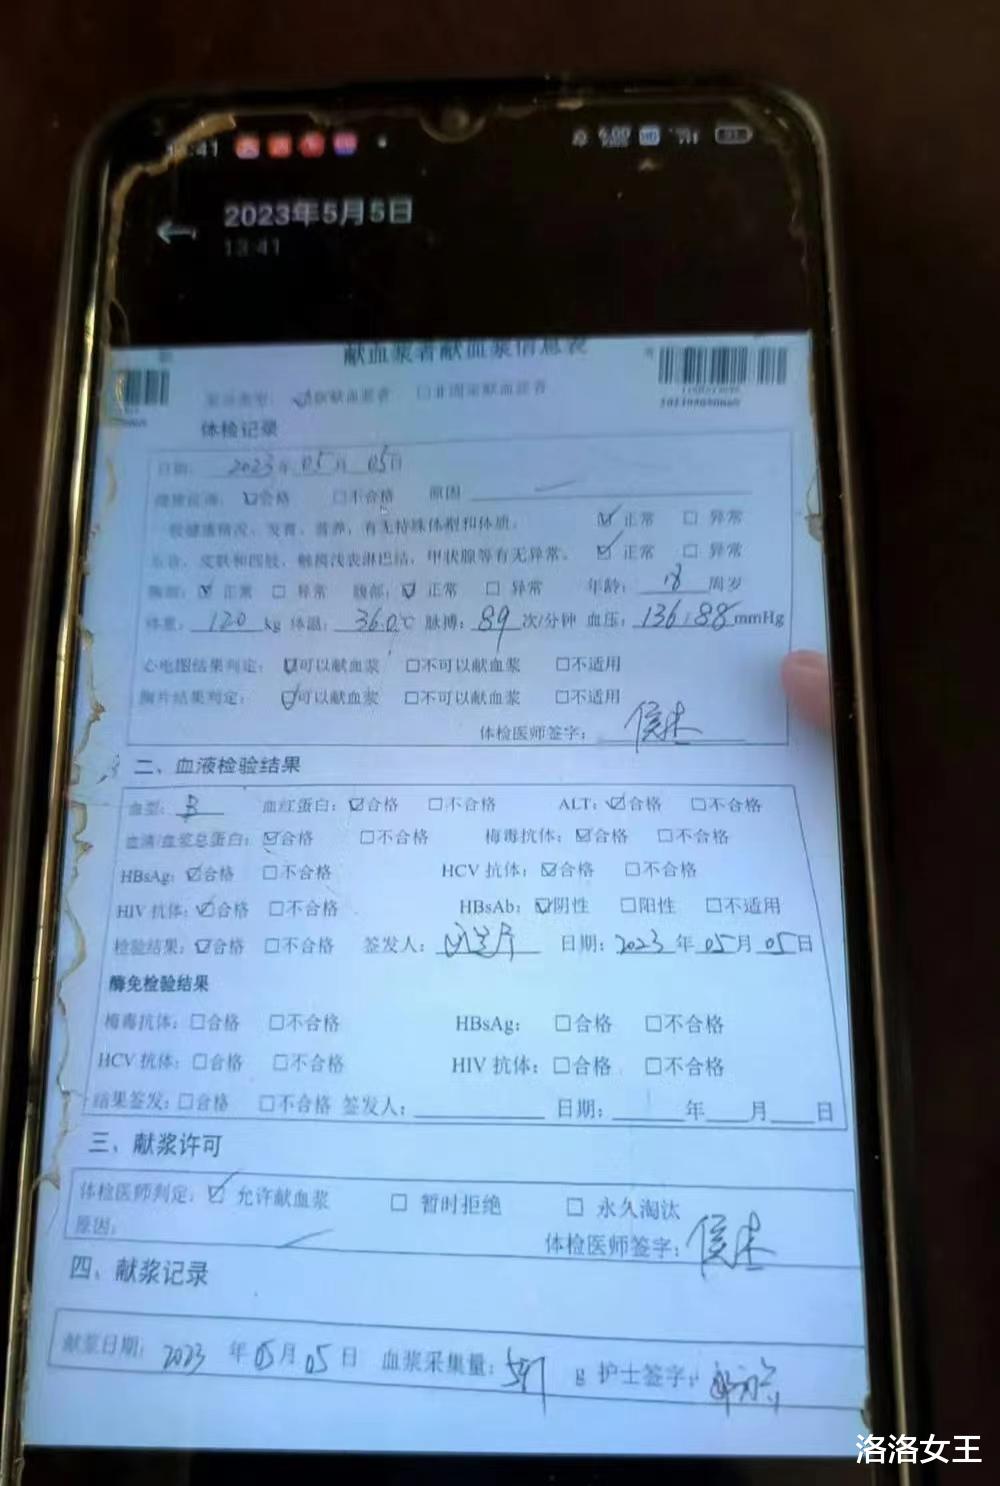 2023年5月5日
13:41
献血浆者献血浆信息表
体检记录
日期: 2023年05月05日
☑合格 □不合格 原因
一般健康情况、发育、营养，有无特殊体型和体质。 ☑正常 □异常
皮肤和四肢，触摸浅表淋巴结，甲状腺等有无异常。 ☑正常 □异常
胸部: ☑正常 □异常 腹部: ☑正常 □异常 年龄: 18 周岁
体重: 120 kg 体温: 36.0℃ 脉搏: 89 次/分钟 血压: 136/88 mmHg
心电图结果判定: ☑可以献血浆 □不可以献血浆 □不适用
胸片结果判定: ☑可以献血浆 □不可以献血浆 □不适用
体检医师签字:
二、血液检验结果
血型: B 血红蛋白: ☑合格 □不合格 ALT: ☑合格 □不合格
血清/血浆总蛋白: ☑合格 □不合格 梅毒抗体: ☑合格 □不合格
HBsAg: ☑合格 □不合格 HCV 抗体: ☑合格 □不合格
HIV 抗体: ☑合格 □不合格 HBsAb: ☑阴性 □阳性 □不适用
检验结果: ☑合格 □不合格 签发人: 日期: 2023 年 05 月 05 日
酶免检验结果
梅毒抗体: □合格 □不合格 HBsAg: □合格 □不合格
HCV 抗体: □合格 □不合格 HIV 抗体: □合格 □不合格
结果签发: □合格 □不合格 签发人: 日期: 年 月 日
三、献浆许可
体检医师判定: ☑ 允许献血浆 □ 暂时拒绝 □ 永久淘汰
原因:
体检医师签字:
四、献浆记录
献浆日期: 2023 年 05 月 05 日 血浆采集量: g 护士签字:
洛洛女王